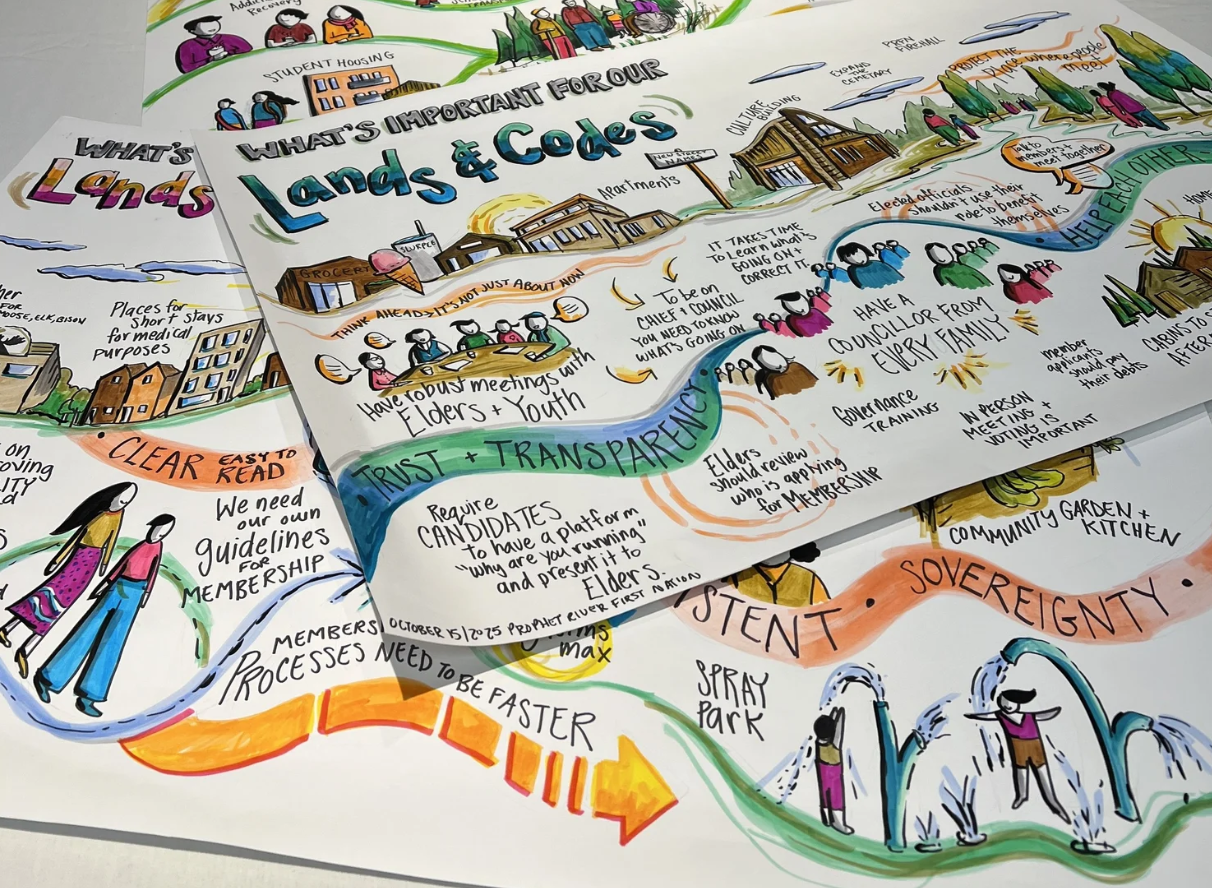 Recovery
STUDENT HOUSING
WHAT'S IMPORTANT FOR OUR
Lands & Codes
GROCERY
SLURPEE
Apartments
NEW STREET
NAMES
CULTURE
BUILDING
EXPAND
THE
CEMETARY
PRFN
FIREHALL
PROTECT THE
place where people
meet
THINK AHEAD > IT'S NOT JUST ABOUT NOW
Have robust meetings with
Elders + Youth
To be on
CHIEF & COUNCIL
YOU NEED TO KNOW
WHAT'S GOING ON
IT TAKES TIME
To Learn what's
GOING ON +
CORRECT IT.
Elected officials
shouldn't use their
role to benefit
themselves
talk to
members +
meet together
• HELP EACH OTHER
HAVE A
COUNCILLOR FROM
EVERY FAMILY
TRUST + TRANSPARENCY •
Governance
TRAINING
IN PERSON
MEETING +
VOTING IS
IMPORTANT
member
applicants
should pay
their debts
CABINS TO
AFTER
Require
CANDIDATES
to have a platform
"why are you running"
and present it to
Elders.
Elders
should review
who is applying
for MEMBERSHIP
OCTOBER 15/2025 PROPHET RIVER FIRST NATION
WHAT'S
Lands
FOR
MOOSE, ELK, BISON
Places for
short stays
for medical
purposes
• CLEAR EASY TO
READ
on
We need
our own
guidelines
FOR
MEMBERSHIP
MEMBERS
PROCESSES NEED TO BE FASTER
max
COMMUNITY GARDEN +
KITCHEN
STENT • SOVEREIGNTY •
SPRAY
PARK